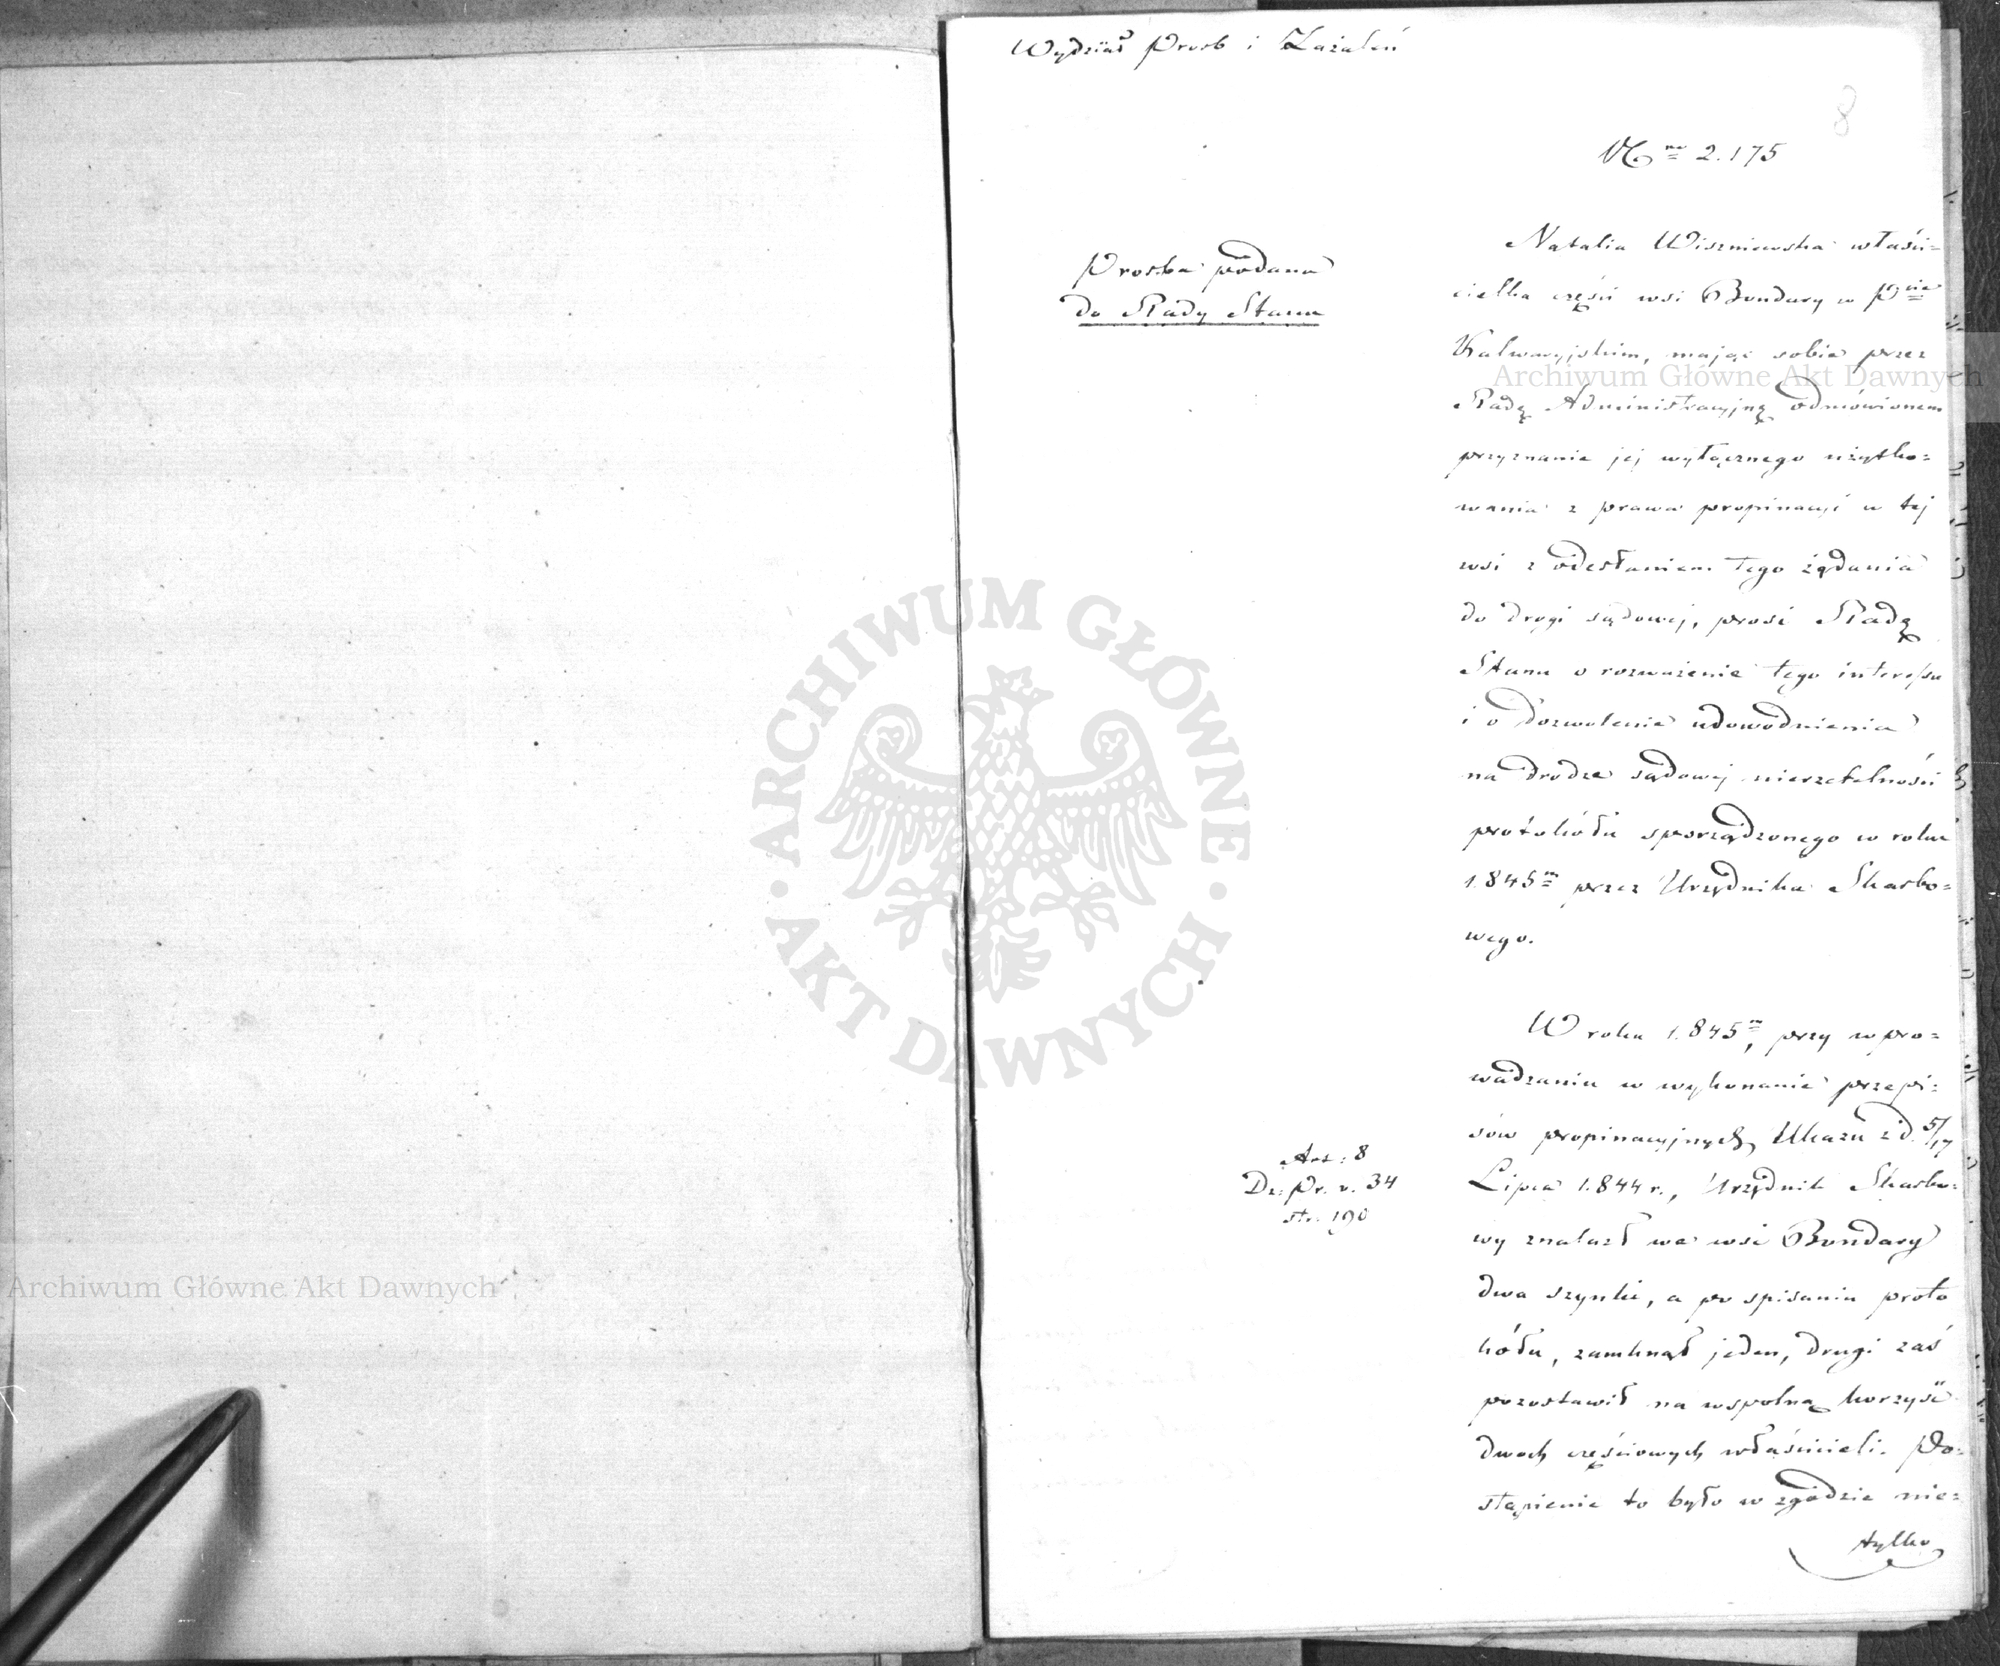 Wydział Prosb i Zażaleń
8
Nro 2.175
Prosba podana
do Rady Stanu
Natalia Wiszniewska właści=
cielka części wsi Bondary w Pcie
Kalwaryjskim, mając sobie przez
Radę Administracyjną odmówionem
przyznanie jej wyłącznego użytko=
wania z prawa propinacyi w tej
wsi z odesłaniem tego żądania
do drogi sądowej, prosi Radę
Stanu o rozważenie tego interessu
i o dozwolenie udowodnienia
na drodze sądowej nierzetelności
protokółu sporządzonego w roku
1.845m przez Urzędnika Skarbo=
wego.
W roku 1.845m, przy wpro=
wadzaniu w wykonanie przepi=
sów propinacyjnych Ukazu z d. 5/17
Lipca 1.844 r., Urzędnik Skarbo=
wy znalazł we wsi Bondary
dwa szynki, a po spisaniu proto
kółu, zamknął jeden, drugi zaś
pozostawił na wspolną korzyść
dwoch częściowych właścicieli. Po=
stąpienie to było w zgodzie nie=
tylko
Art: 8
Dz: Pr. v. 34
str. 190
Archiwum Główne Akt Dawnych
Archiwum Główne Akt Dawnych
ARCHIWUM GŁÓWNE
AKT DAWNYCH